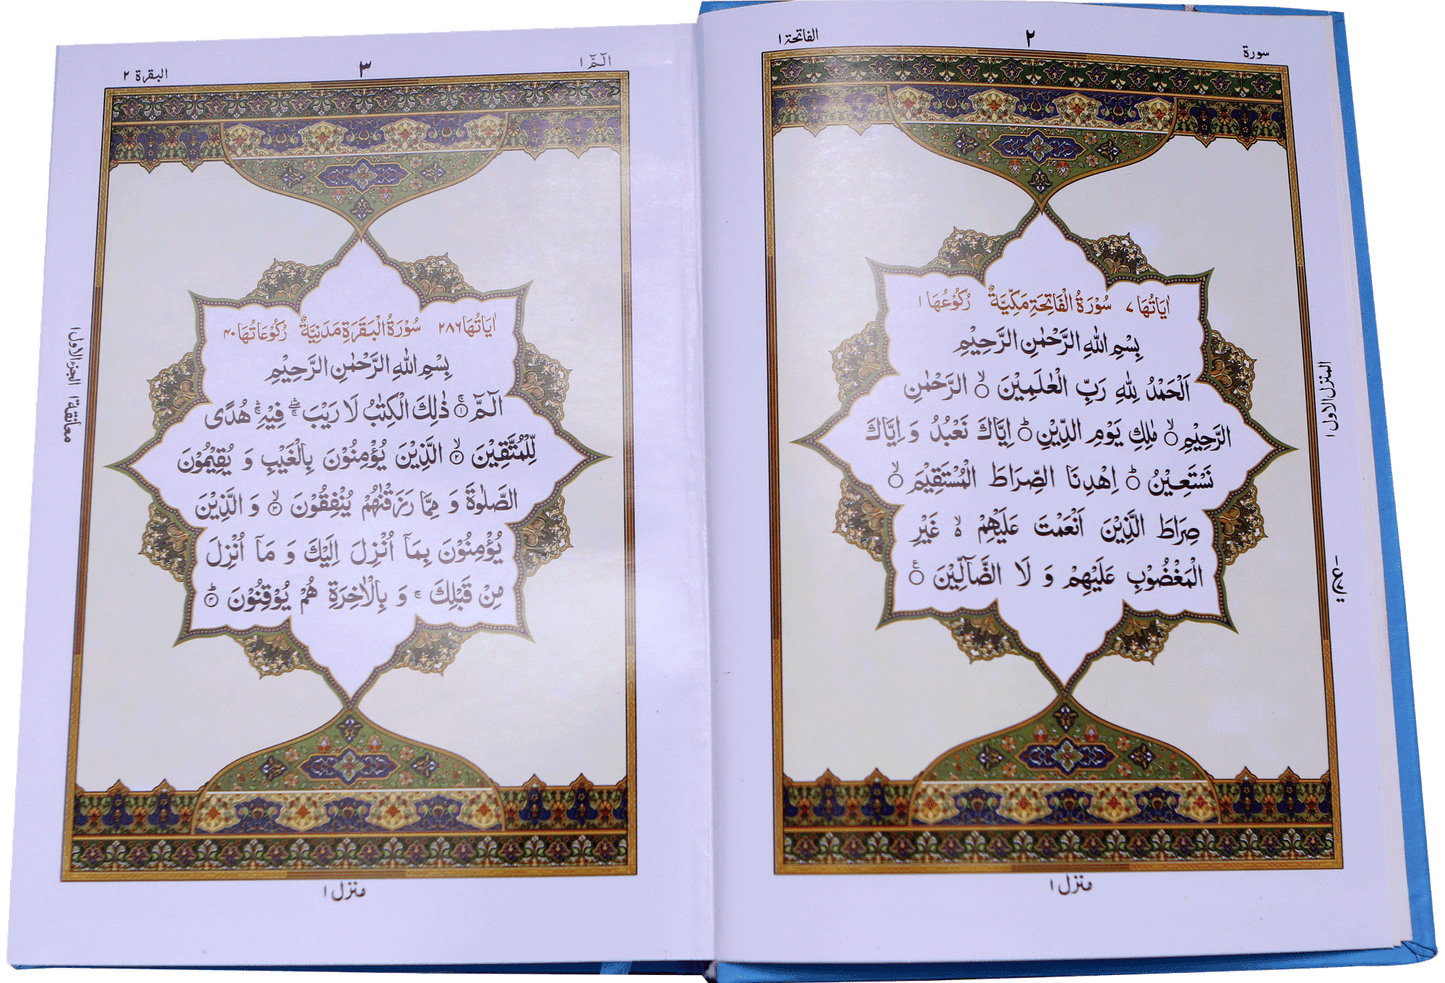 سورة
٢
الفاتحة ١
اٰیَاتُهَا ٧ سُوْرَةُ الْفَاتِحَةِ مَكِّيَّةٌ رُكُوْعُهَا ١
بِسْمِ اللهِ الرَّحْمٰنِ الرَّحِيْمِ
اَلْحَمْدُ لِلّٰهِ رَبِّ الْعٰلَمِيْنَ ۙ الرَّحْمٰنِ
الرَّحِيْمِ ۙ مٰلِكِ يَوْمِ الدِّيْنِ ؕ اِيَّاكَ نَعْبُدُ وَ اِيَّاكَ
نَسْتَعِيْنُ ؕ اِهْدِنَا الصِّرَاطَ الْمُسْتَقِيْمَ ۙ
صِرَاطَ الَّذِيْنَ اَنْعَمْتَ عَلَيْهِمْ ۙ۬ غَيْرِ
الْمَغْضُوْبِ عَلَيْهِمْ وَ لَا الضَّآلِّيْنَ
المنزل الاول ١
منزل ١
الٓمّٓ ١
٣
البقرة ٢
اٰیَاتُهَا ٢٨٦ سُوْرَةُ الْبَقَرَةِ مَدَنِيَّةٌ رُكُوْعَاتُهَا ٤٠
بِسْمِ اللهِ الرَّحْمٰنِ الرَّحِيْمِ
الٓمّٓ ۚ١ ذٰلِكَ الْكِتٰبُ لَا رَيْبَ ۛۖ فِيْهِ ۛۚ هُدًى
لِّلْمُتَّقِيْنَ ۙ٢ الَّذِيْنَ يُؤْمِنُوْنَ بِالْغَيْبِ وَ يُقِيْمُوْنَ
الصَّلٰوةَ وَ مِمَّا رَزَقْنٰهُمْ يُنْفِقُوْنَ ۙ٣ وَ الَّذِيْنَ
يُؤْمِنُوْنَ بِمَآ اُنْزِلَ اِلَيْكَ وَ مَآ اُنْزِلَ
مِنْ قَبْلِكَ ۚ وَ بِالْاٰخِرَةِ هُمْ يُوْقِنُوْنَ ؕ٤
معانقة ١ الجزء الاول ١
منزل ١